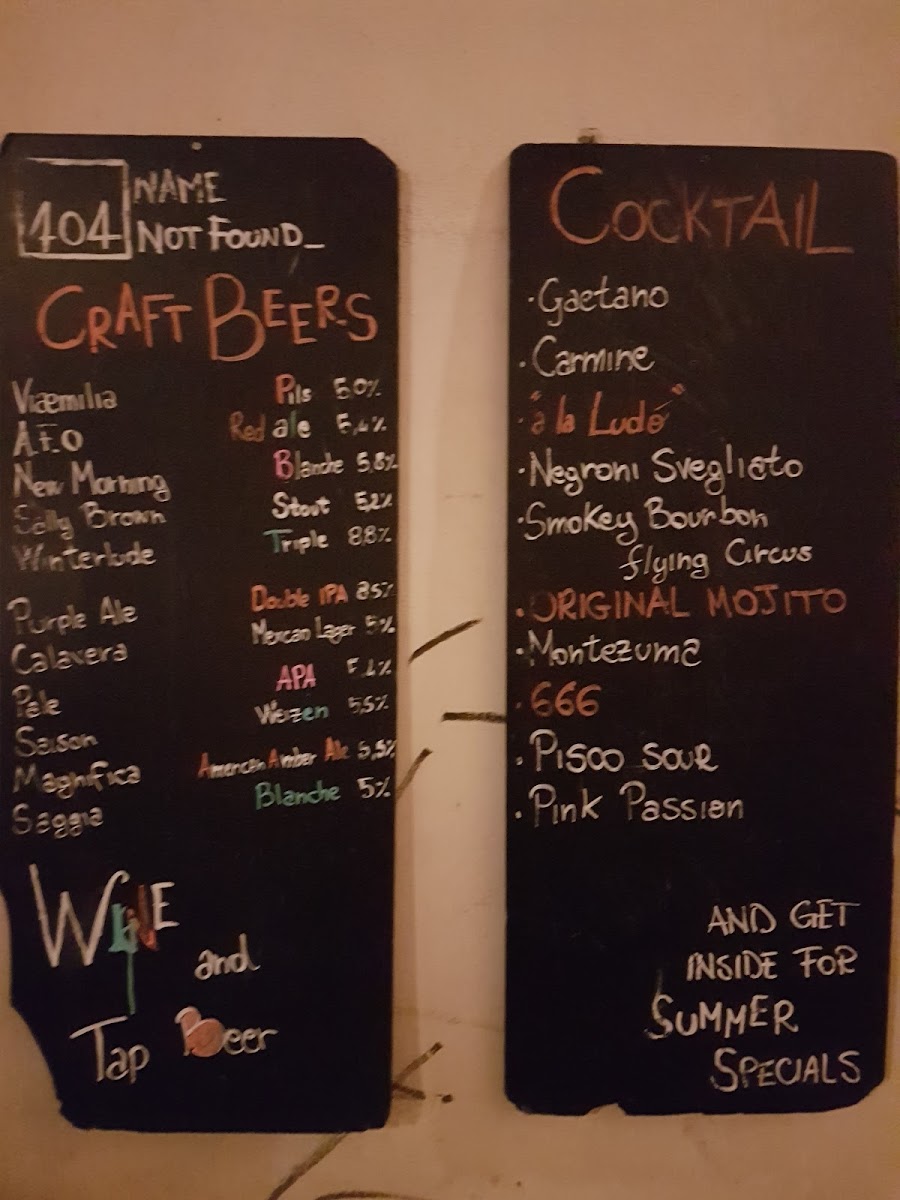 404 NAME
NOT FOUND_
CRAFT BEERS
Viæmilia Pils 5,0%
A.F.O Red ale 5,4%
New Morning Blanche 5,8%
Sally Brown Stout 5,2%
Winterlude Triple 8,8%
Purple Ale Double IPA 8,5%
Calavera Mexcan Lager 5%
Pale APA 5,4%
Saison Weizen 5,5%
Magnifica American Amber Ale 5,5%
Saggia Blanche 5%
WINE
and
Tap Beer
COCKTAIL
·Gaetano
·Carmine
·"a la Ludo"
·Negroni Svegliato
·Smokey Bourbon
flying Circus
·ORIGINAL MOJITO
·Montezuma
·666
·Pisco SOUR
·Pink Passion
AND GET
INSIDE FOR
SUMMER
SPECIALS